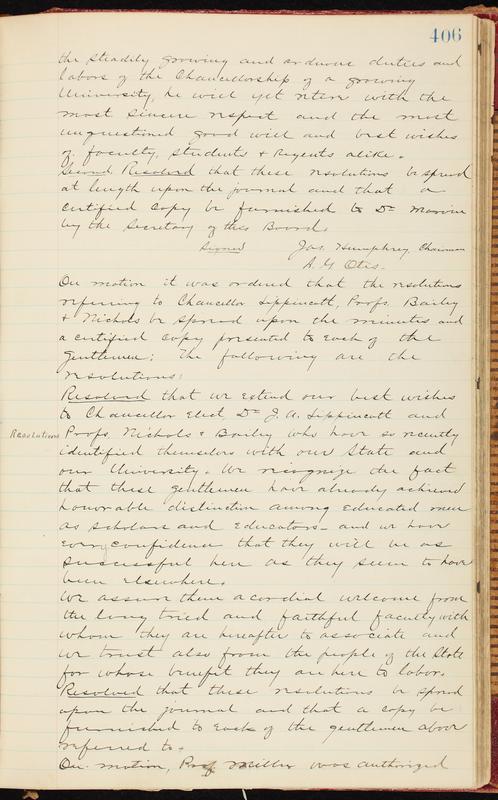 406
the steadily growing and arduous duties and
labors of the Chancellorship of a growing
University, he will yet retire with the
most sincere respect and the most
unquestioned good will and best wishes
of faculty, students & Regents alike.
Second Resolved that these resolutions be spread
at length upon the journal and that a
certified copy be furnished to Dr Marvin
by the Secretary of this Board.
Signed Jas. Humphrey, Chairman
A. G Otis.
On motion it was ordered that the resolutions
referring to Chancellor Lippincott, Profs. Bailey
& Nichols be spread upon the minutes and
a certified copy presented to each of the
Gentlemen: The following are the
resolutions:
Resolved that we extend our best wishes
to Chancellor Elect Dr J. A. Lippincott and
Resolutions Profs. Nichols & Bailey who have so recently
identified themselves with our State and
our University. We recognize the fact
that these gentlemen have already achieved
honorable distinction among educated men
as scholars and educators - and we have
every confidence that they will be as
successful here as they seem to have
been elsewhere.
We assure them a cordial welcome from
the long tried and faithful faculty with
whom they are hereafter to associate and
we trust also from the people of the State
for whose benefit they are here to labor.
Resolved that these resolutions be spread
upon the journal and that a copy be
furnished to each of the gentlemen above
referred to.
On motion, Prof. Miller was authorized